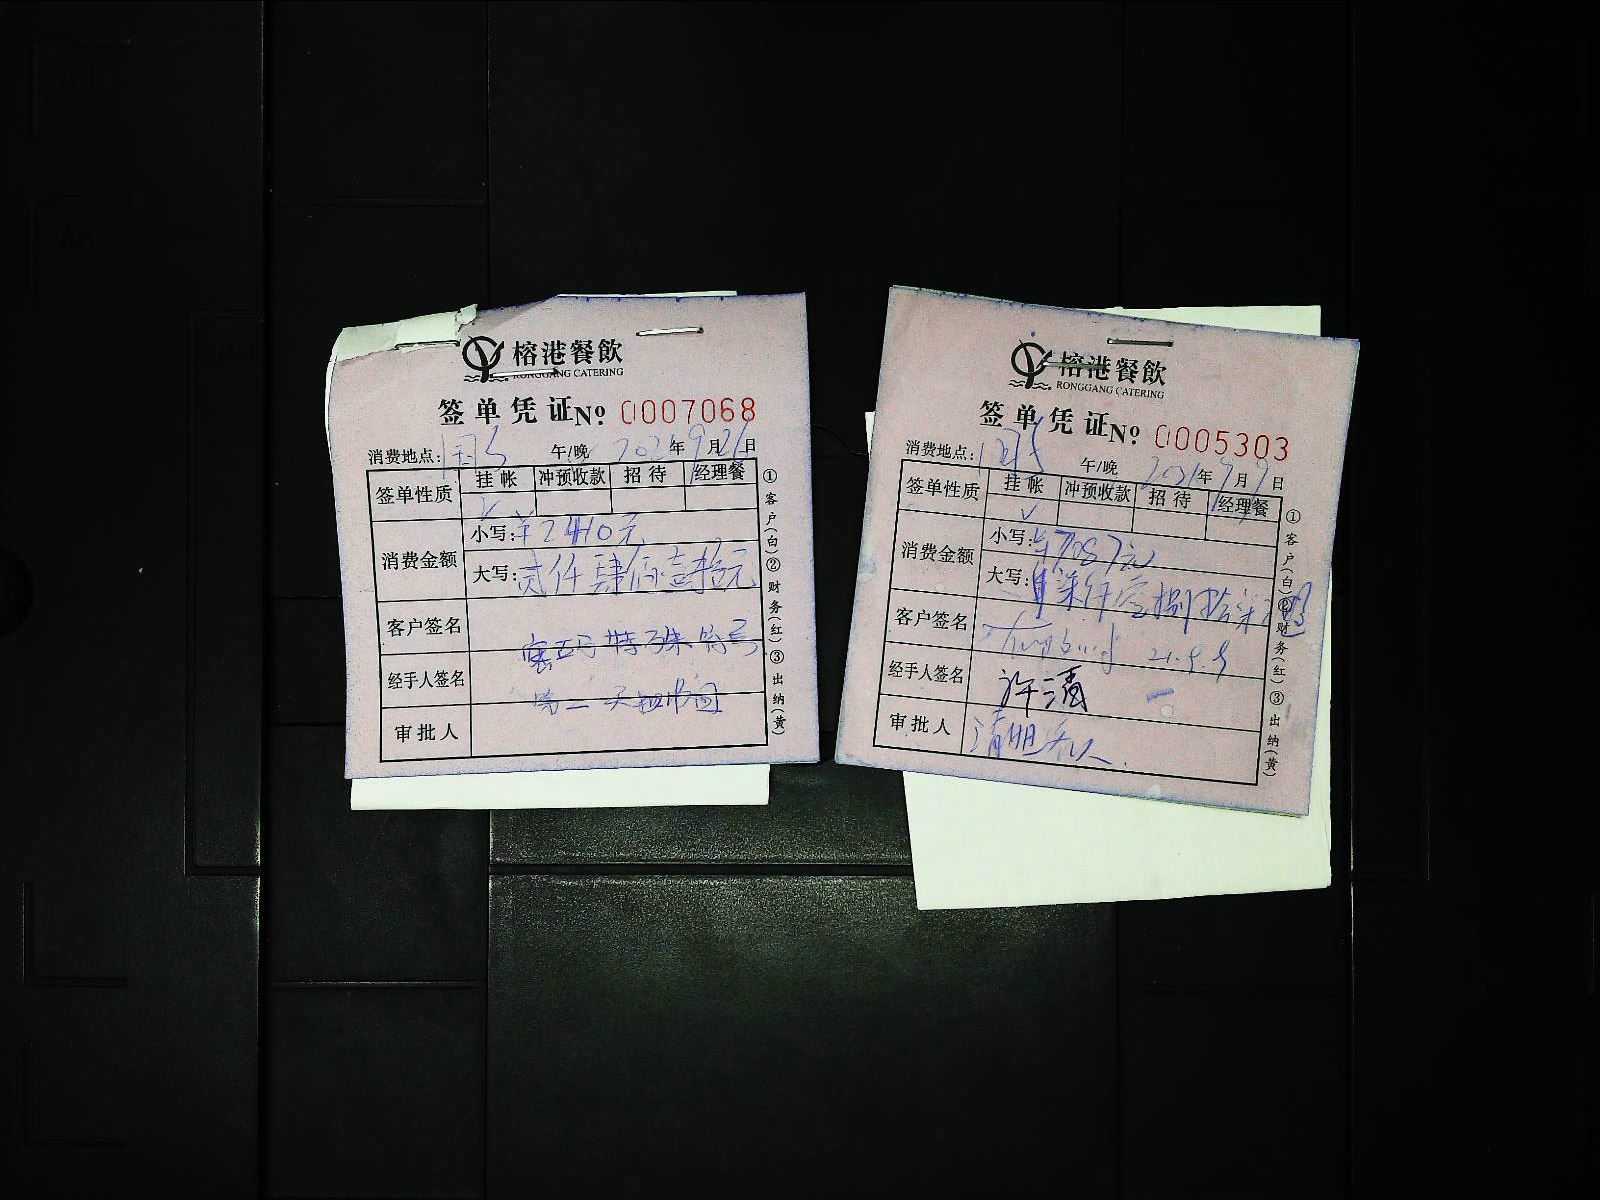 榕港餐飲
RONGGANG CATERING
签单凭证 № 0007068
消费地点: 午/晚 年 9月21日
签单性质 挂帐 冲预收款 招待 经理餐
√
消费金额 小写: ¥2410元
大写: 贰仟肆佰壹拾元
客户签名
经手人签名
审批人
①客户(白)②财务(红)③出纳(黄)
榕港餐飲
RONGGANG CATERING
签单凭证 № 0005303
消费地点: 午/晚 2021年9月9日
签单性质 挂帐 冲预收款 招待 经理餐
√
消费金额 小写: ¥7087元
大写: 柒仟零捌拾柒
客户签名 21.9.9
经手人签名 许清
审批人
①客户(白)②财务(红)③出纳(黄)